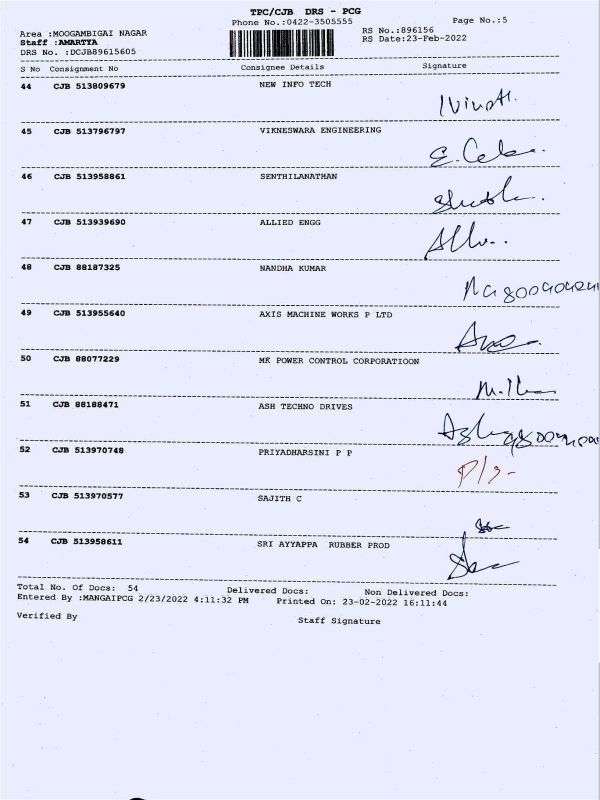 TPC/CJB DRS - PCG
Phone No.:0422-3505555
Page No.:5
Area :MOOGAMBIGAI NAGAR
RS No.:896156
Staff :AMARTYA
RS Date:23-Feb-2022
DRS No. :DCJB89615605
S No Consignment No Consignee Details Signature
44 CJB 513809679 NEW INFO TECH
45 CJB 513796797 VIKNESWARA ENGINEERING
46 CJB 513958861 SENTHILANATHAN
47 CJB 513939690 ALLIED ENGG
48 CJB 88187325 NANDHA KUMAR
49 CJB 513955640 AXIS MACHINE WORKS P LTD
50 CJB 88077229 MK POWER CONTROL CORPORATIOON
51 CJB 88188471 ASH TECHNO DRIVES
52 CJB 513970748 PRIYADHARSINI P P
53 CJB 513970577 SAJITH C
54 CJB 513958611 SRI AYYAPPA RUBBER PROD
Total No. Of Docs: 54 Delivered Docs: Non Delivered Docs:
Entered By :MANGAIPCG 2/23/2022 4:11:32 PM Printed On: 23-02-2022 16:11:44
Verified By
Staff Signature